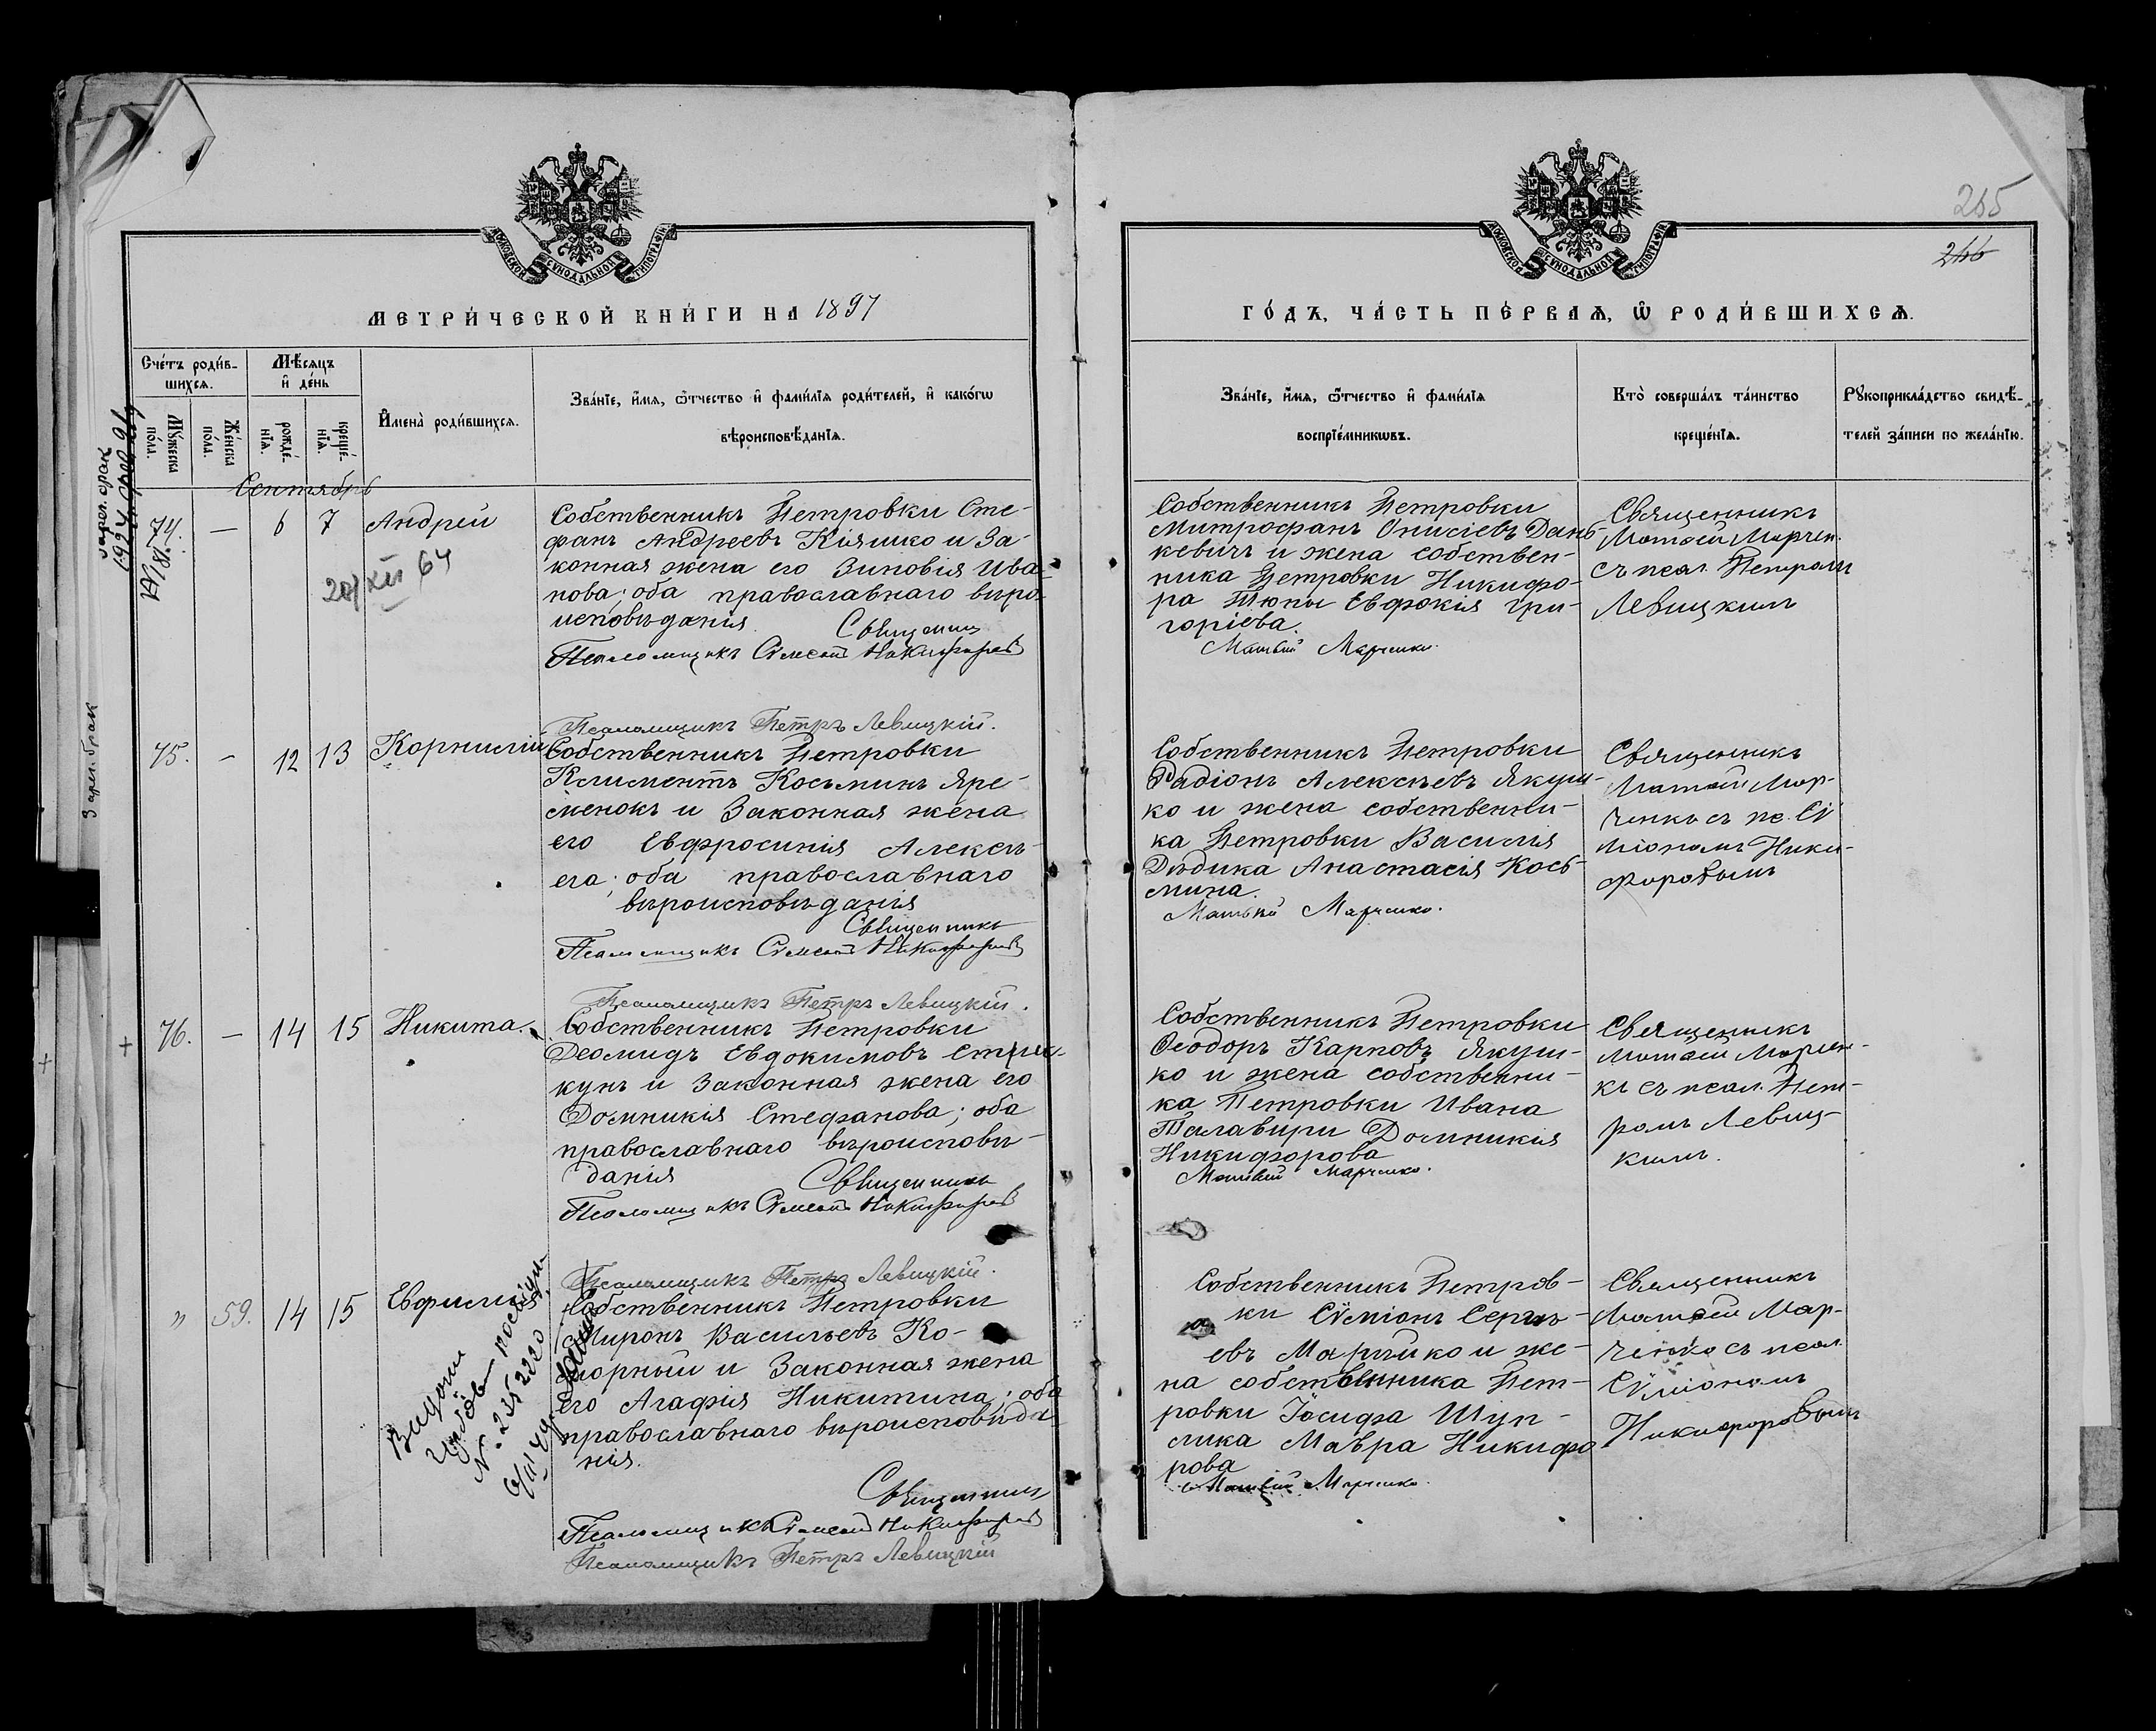 МОСКОВСКОЙ СѴНОДАЛЬНОЙ ТИПОГРАФІИ
МЕТРИ́ЧЕСКОЙ КНИ́ГИ НА 1897
Сче́тъ роди́в-
шихсѧ.
Мѣ́сѧцъ
и҆ де́нь
Мꙋ́жеска
по́ла.
Же́нска
по́ла.
рожде́-
нїѧ.
креще́-
нїѧ.
И҆мена̀ роди́вшихсѧ.
Зва́нїе, и҆́мѧ, ѻ҆́тчество и҆ фами́лїѧ роди́телей, и҆ како́гѡ
вѣроисповѣ́данїѧ.
Сентябрь
74. — 6 7 Андрей
20/XII 64
Собственникъ Петровки Сте-
фанъ Андреевъ Кіяшко и За-
конная жена его Зиновія Ива-
нова; оба православнаго виро-
исповѣданія
Священникъ
Псаломщикъ Симеонъ Никифоровъ
Псаломщикъ Петръ Левицкій.
75. — 12 13 Корнилій
Собственникъ Петровки
Климентъ Косьминъ Яре-
менокъ и Законная жена
его Евфросинія Алексѣ-
ева; оба православнаго
вѣроисповѣданія
Священникъ
Псаломщикъ Симеонъ Никифоровъ
Псаломщикъ Петръ Левицкій.
76. — 14 15 Никита.
Собственникъ Петровки
Деомидъ Евдокимовъ
кунъ и Законная жена его
Домникія Стефанова; оба
православнаго вѣроисповѣ-
данія
Священникъ
Псаломщикъ Симеонъ Никифоровъ
Псаломщикъ Петръ Левицкій.
" 59. 14 15 Евфимія
№ 2352220
Собственникъ Петровки
Миронъ Васильевъ Ко-
морный и Законная жена
его Агафія Никитина; оба
православнаго вѣроисповѣда-
нія.
Священникъ
Псаломщикъ Симеонъ Никифоровъ
Псаломщикъ Петръ Левицкій
3 арег. брак
265
266
МОСКОВСКОЙ СѴНОДАЛЬНОЙ ТИПОГРАФІИ
ГО́ДЪ, ЧА́СТЬ ПЕ́РВАѦ, Ѡ҆ РОДИ́ВШИХСѦ.
Зва́нїе, и҆́мѧ, ѻ҆́тчество и҆ фами́лїѧ
воспрїе́мникѡвъ.
Кто̀ соверша́лъ та́инство
креще́нїѧ.
Рꙋкоприкла́дство свидѣ́-
телей за́писи по жела́нїю.
Собственникъ Петровки
Митрофанъ Онисіевъ Дань-
кевичъ и жена собствен-
ника Петровки Никифо-
ра Тюпы Евдокія Гри-
горіева.
Матвій Марченко.
Священникъ
Матѳей Марчен.
съ псал. Петромъ
Левицкимъ
Собственникъ Петровки
Радіонъ Алексѣевъ Якуш-
ко и жена собственни-
ка Петровки Василія
Дѣдика Анастасія Кось-
мина.
Матвій Марченко.
Священникъ
Матѳей Мар-
ченко съ пс. Сѵ
міономъ Ники-
форовымъ
Собственникъ Петровки
Ѳеодоръ Карповъ Якуш-
ко и жена собственни-
ка Петровки Ивана
Талавири Домникія
Никифорова
Матвій Марченко.
Священникъ
Матѳей Марчен-
къ съ псал. Пет-
ромъ Левиц-
кимъ.
Собственникъ Петров-
ки Сѵміонъ Сергѣ-
евъ Марчико и же-
на собственника Пет-
ровки Іосифа Шуп-
лика Мавра Никифо
рова
Матвій Марченко.
Священникъ
Матѳей Мар-
ченко съ псал.
Сѵміономъ
Никифоровымъ